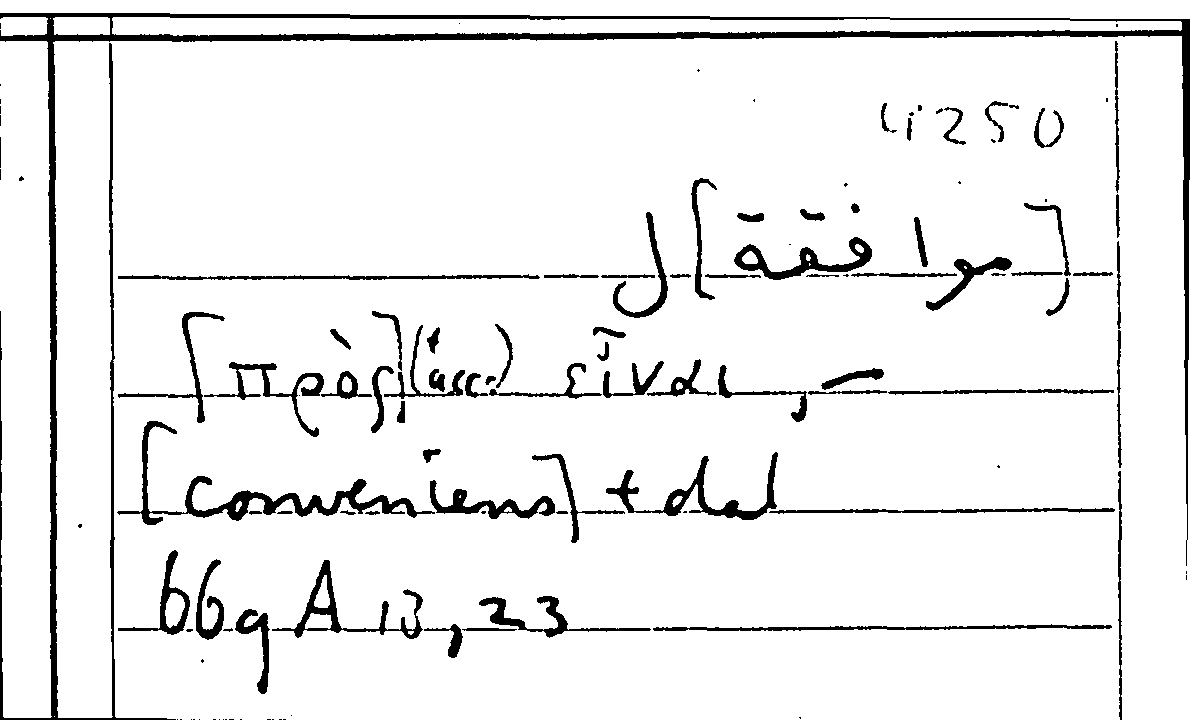 4250
[موافقة] ل
[πρὸς] (+ acc.) εἶναι, –
[conveniens] + dat
66g A 13, 23